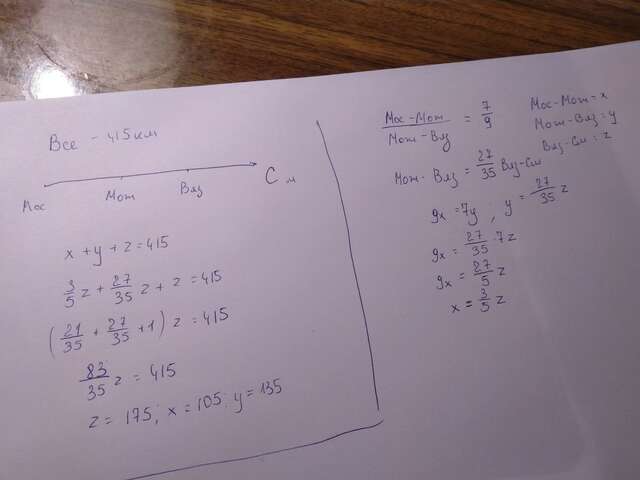 Все - 415 км
Мос Мож Вяз См
x + y + z = 415
3/5 z + 27/35 z + z = 415
(21/35 + 27/35 + 1) z = 415
83/35 z = 415
z = 175; x = 105; y = 135
Мос-Мож / Мож-Вяз = 7/9
Мос-Мож = x
Мож-Вяз = y
Вяз-См = z
Мож-Вяз = 27/35 Вяз-См
9x = 7y ; y = 27/35 z
9x = 27/35 · 7z
9x = 27/5 z
x = 3/5 z